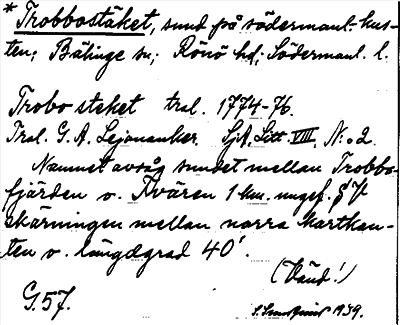 * Trobbostäket, sund på södermanl. kus-
ten; Bälinge sn; Rönö hd; Södermanl. l.
Trobo steket tral. 1774-76.
Tral. G. A. Lejonanker. SjA. Litt. VIII. N:o 2.
Namnet avsåg sundet mellan Trobbo-
fjärden o. Tvären 1 km. ungef. S V
skärningen mellan norra kartkan-
ten o. längdgrad 40'.
(Vänd!)
G. 57.
1939.